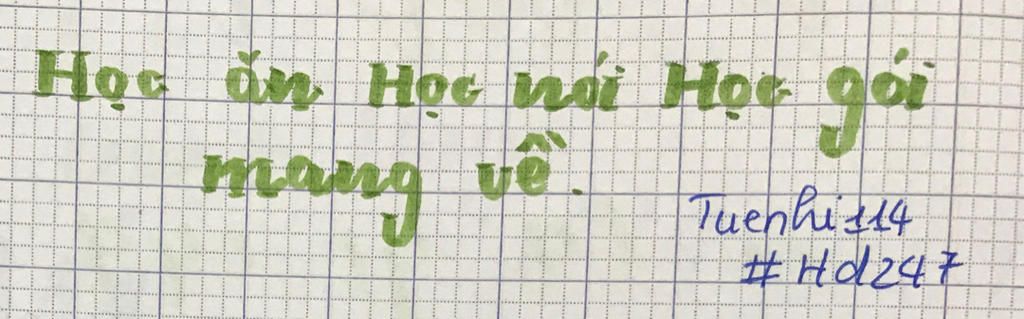 Học ăn Học nói Học gói
mang về.
Tuenhi114
#Hd247